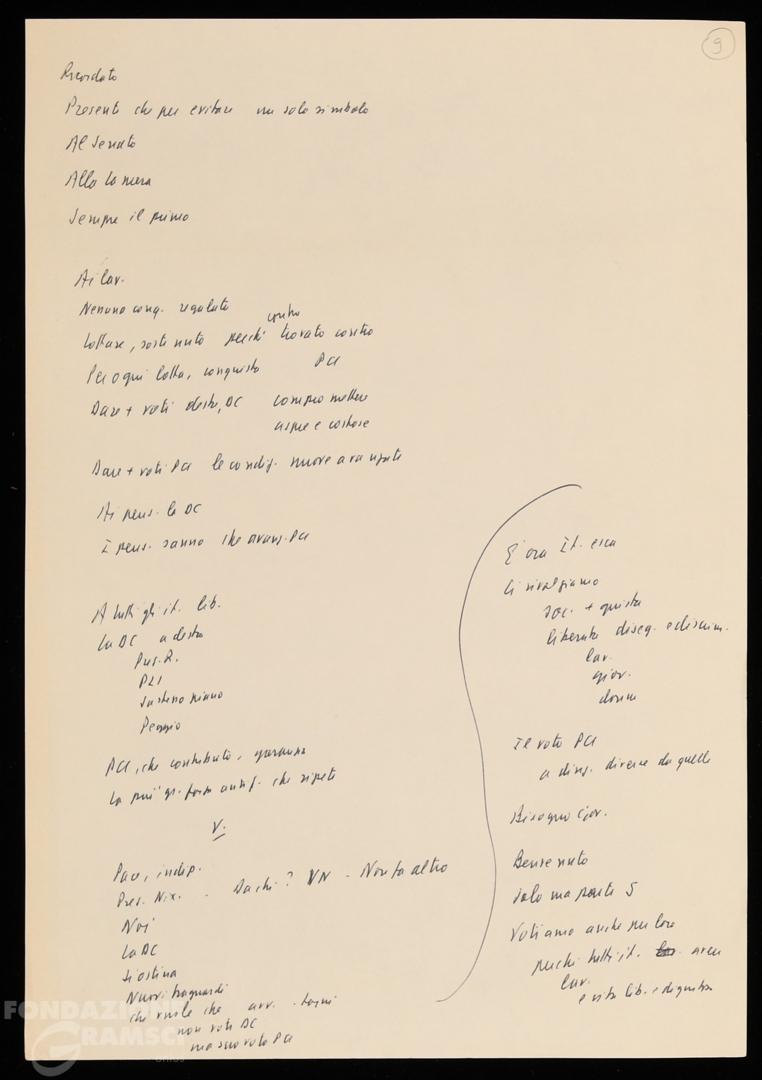 9
Ricordato
Presenti che per evitare un solo simbolo
Al Senato
Alla Camera
Sempre il primo
Ai lav.
Nessuna conq. regalata
Lottare, sostenuto perché trovato contro
contro
PCI
Per ogni lotta, conquista
Dare + voti destra, DC compromettere
aspre e costose
Dare + voti PCI le condiz. nuove avanzate
Ai pens. la DC
I pens. sanno che avanz. PCI
A tutti gli it. lib.
La DC a destra
Pres. R.
PLI
Sostengono
Peggio
PCI, che contributo, garanzia
La più gr. forza antif. che ripete
V.
Pace, indip.
Pres. Nix. - Da chi? VN - Non fa altro
Noi
La DC
Si ostina
Nuovi traguardi
che vuole che avv.
non voti DC
ma suo voto PCI
E' ora It. esca
Ci rivolgiamo
soc. + giusta
liberata disoc. e discrim.
lav.
giov.
donne
Il voto PCI
a direz. diverse da quelle
Bisogno giov.
Benvenuto
Solo una parte S
Votiamo anche per loro
perché tutti it. aven
lav.
e vita lib. e dignitosa
FONDAZIONE
GRAMSCI
onlus